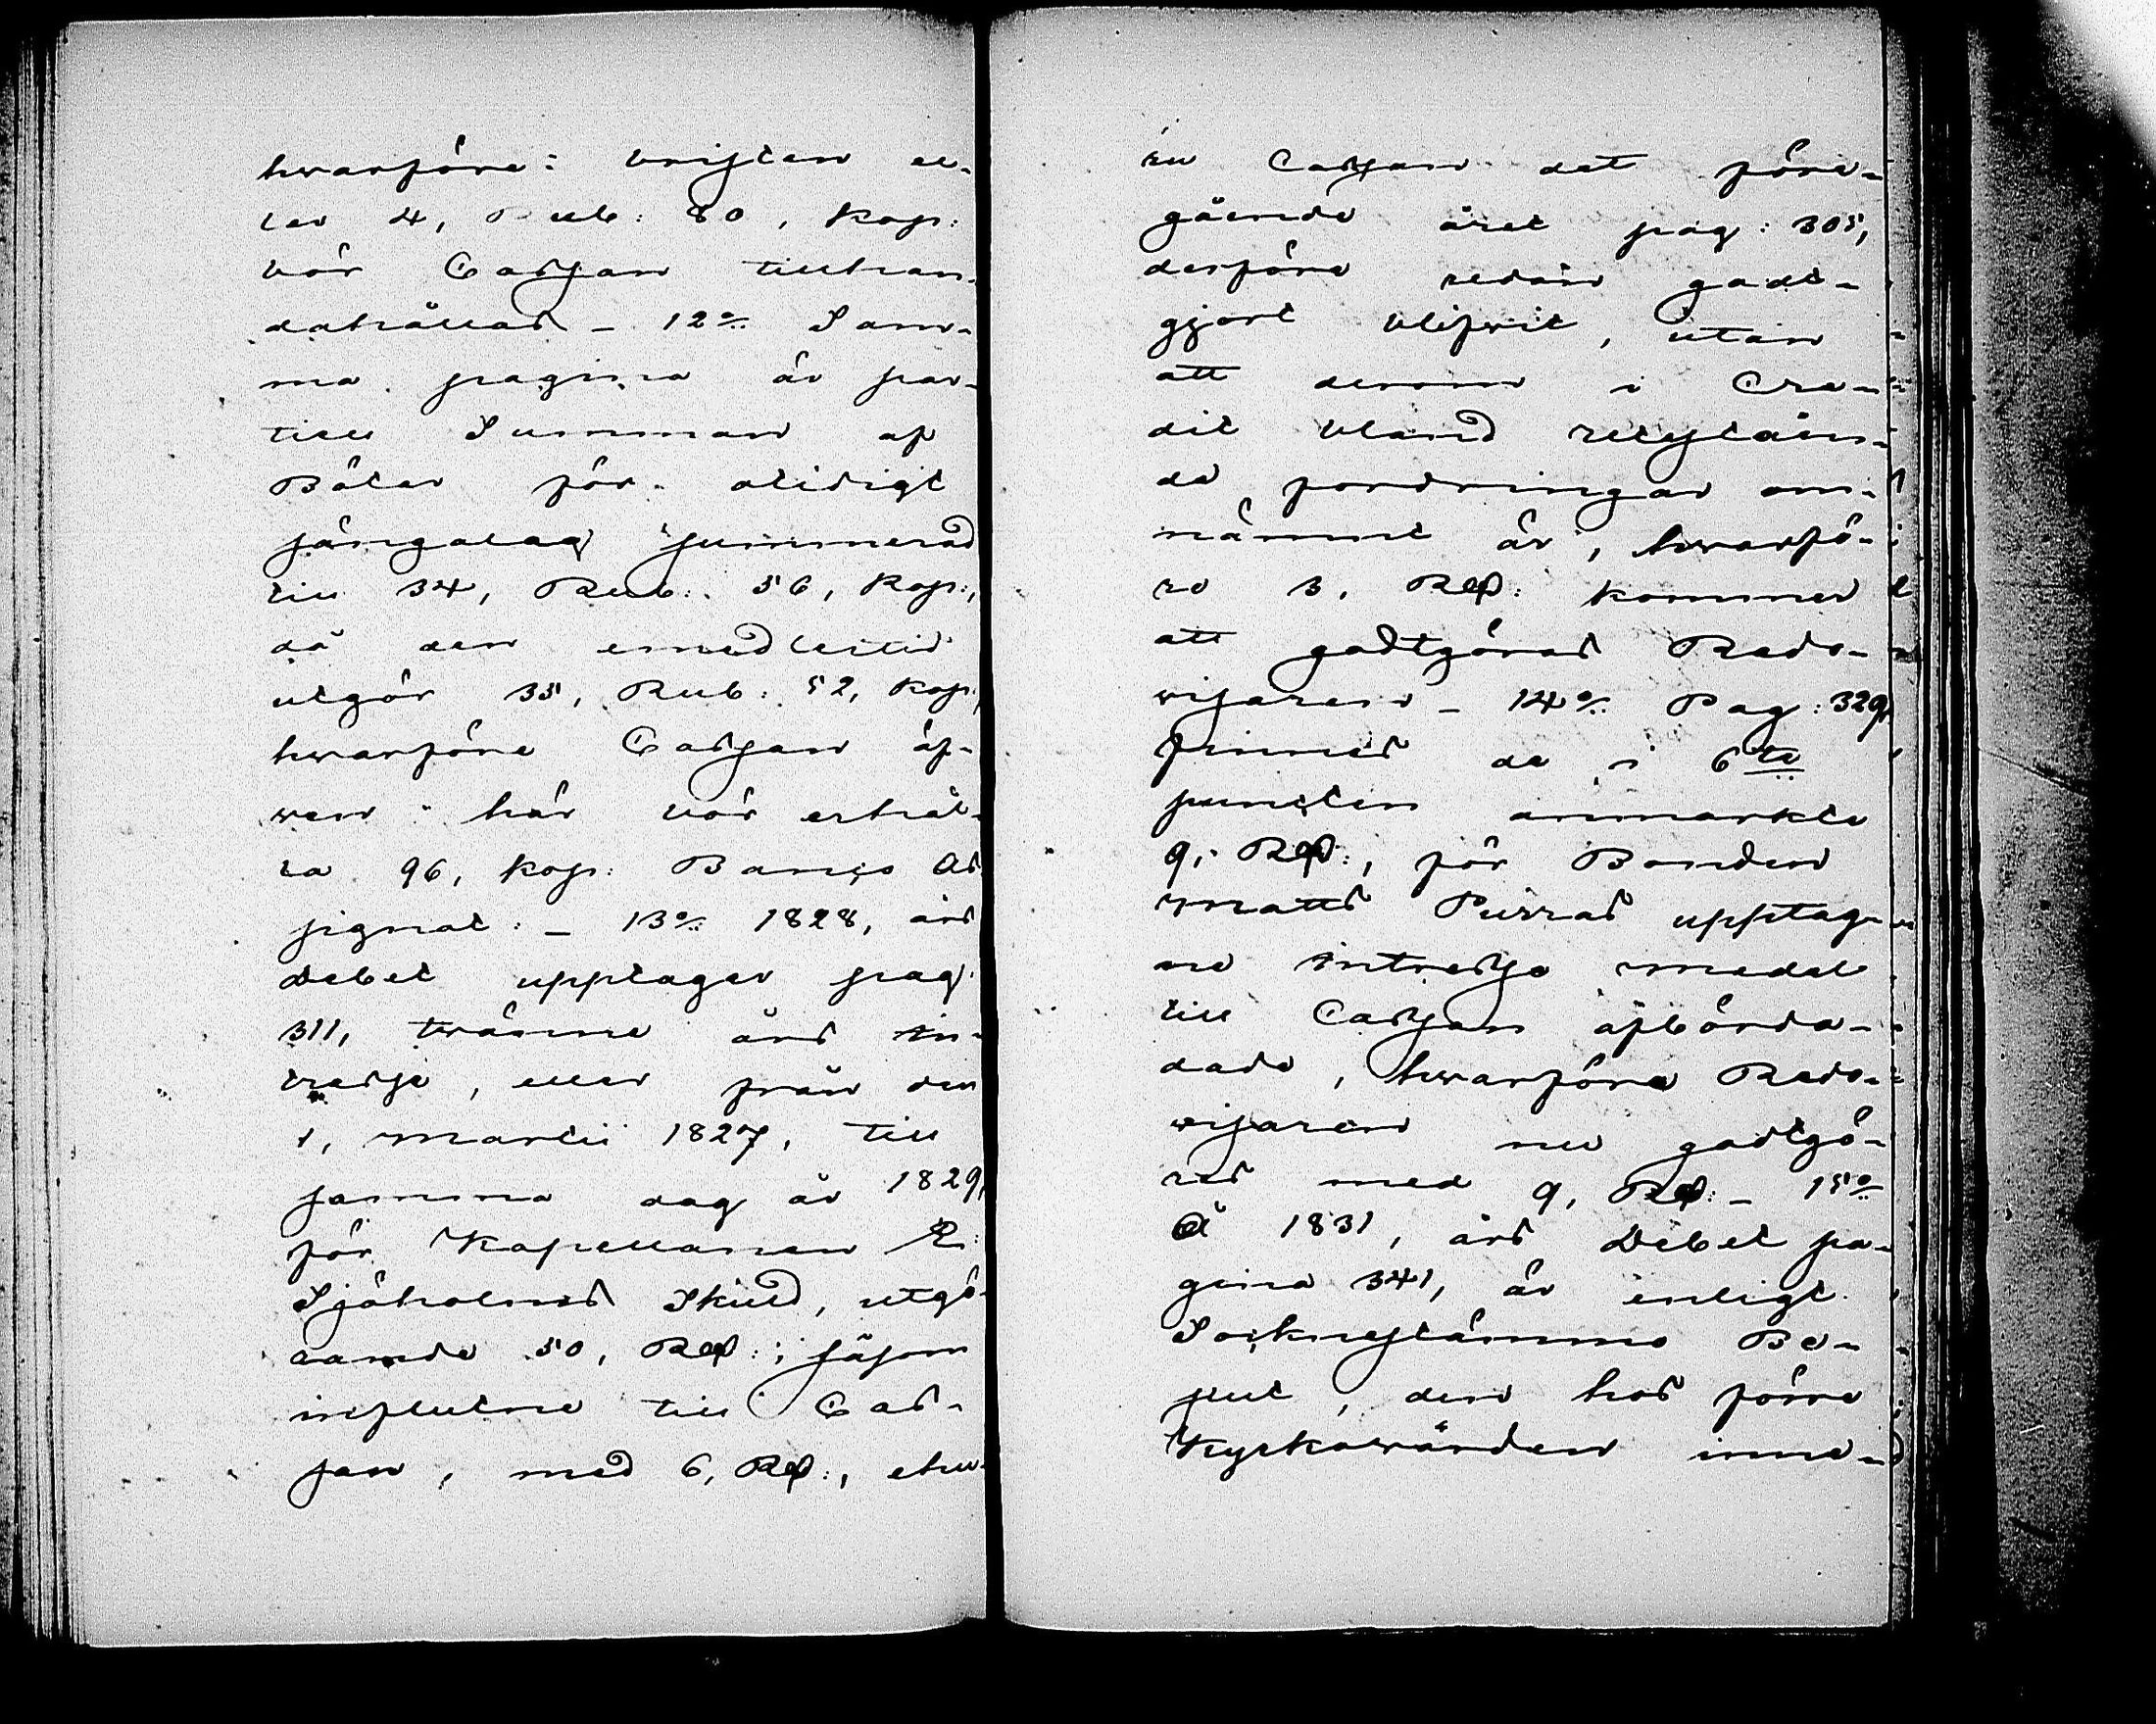 hwarföre bristen el-
ler 4, Rub: 80, Kop:
bör Cassan tillhan-
dahållas – 12:o Sam-
ma pagina är par-
tiell Summan af
Böter för olidigt
sångalag summerad
till 34, Rub: 56, Kop:,
då den emedlertid
utgör 35, Rub: 52, Kop:,
hwarföre Cassan äf-
wen här bör erhål-
la 96, Kop: Banco As-
signat: – 13:o 1828, års
Debet upptager pag:
311, twänne års In-
tresse, eller från den
1, Martii 1827, till
samma dag år 1829,
för Kapellanen E:
Sjöholms Skuld, utgö-
rande 50, Rbl:, såsom
influtne till Cas-
san, med 6, Rbl:, ehu-
ru Cassan det före-
gående året pag: 305,
derföre redan godt-
gjort blifwit, utan
att derom i Cre-
dit bland resteran-
de fordringar om-
nämnt är, hwarfö-
re 3, Rbl: kommer
att godtgöras Redo-
wisaren – 14:o Pag: 329,
finnes de i 6:te
puncten anmärkte
9, Rbl:, för Bonden
Matts Purras upptag-
ne Intresse medel
till Cassan afbörda-
dade, hwarföre Redo-
wisaren nu godtgö-
res med 9, Rbl: – 15:o
Å 1831, års Debet pa-
gina 341, är enligt
Sockenstämmo Be-
slut, den hos förre
Kyrkowärden inne-